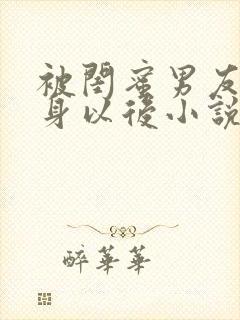 被閨蜜男友
身以後小說
醉華華